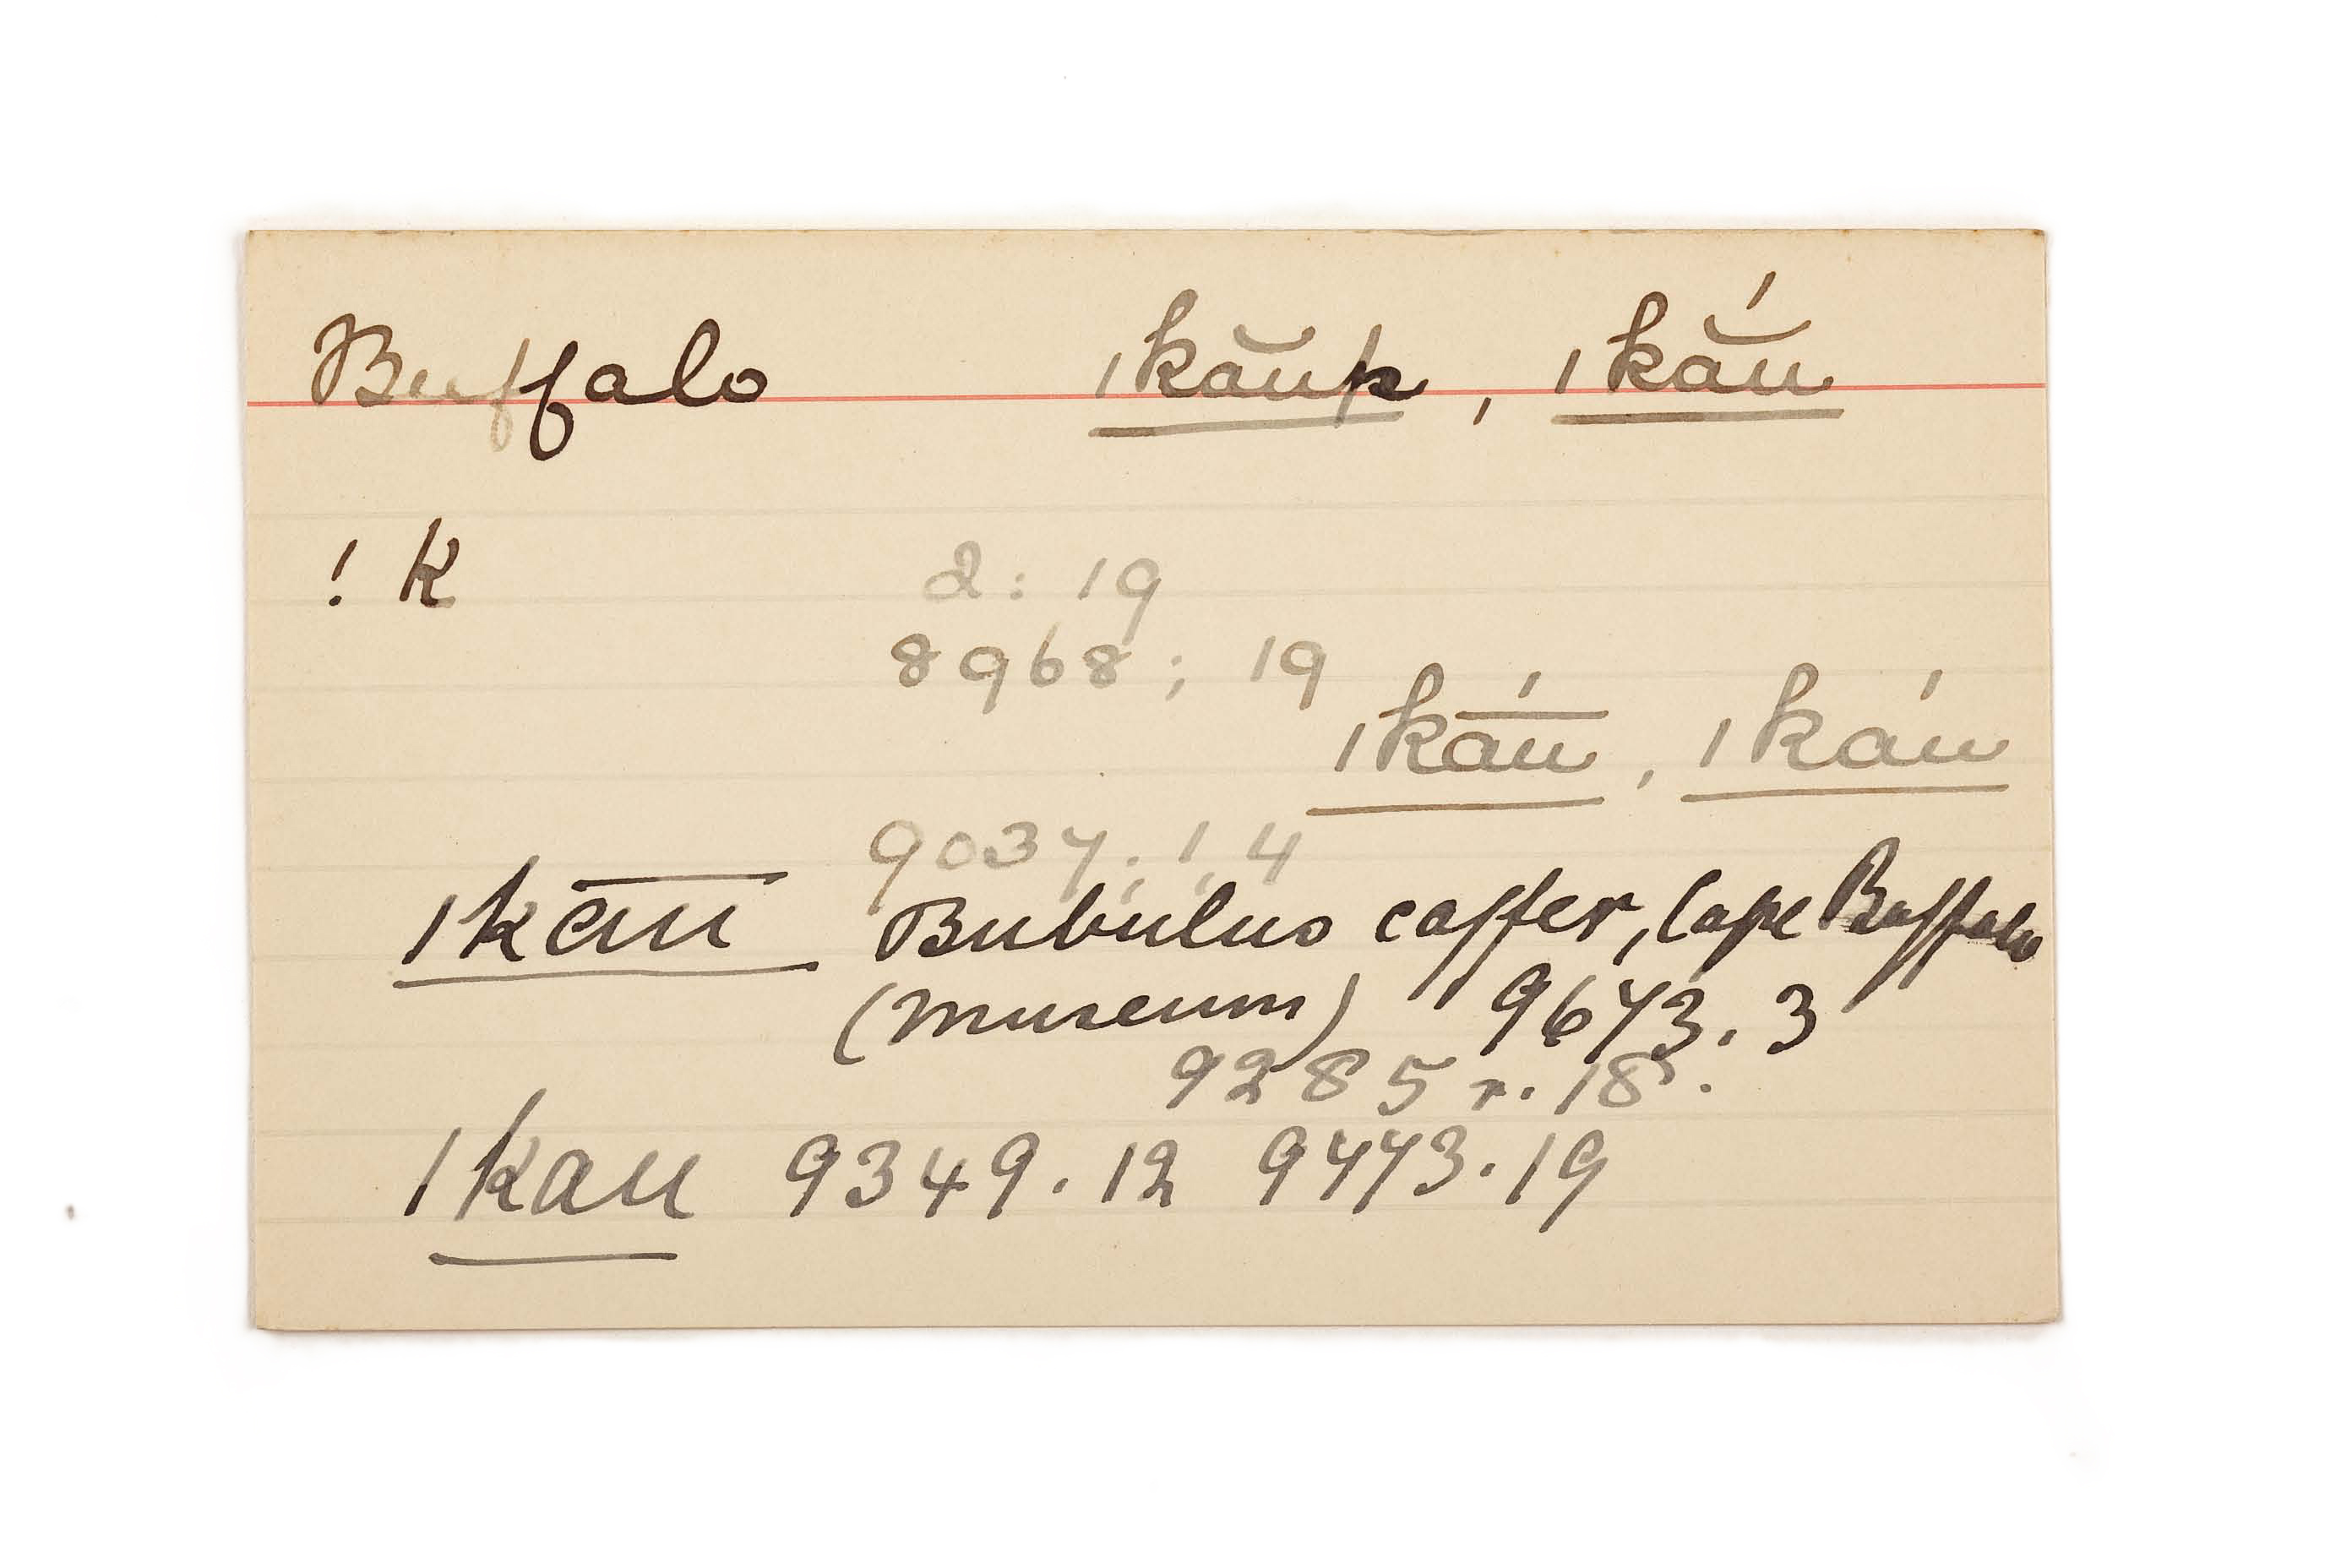 Buffalo ǀkău̯p, ǀkắu
! k
2: 19
8968; 19
ǀkā́ū, ǀkáu
9037; 1, 4
ǀkāū Bubulus caffer, Cape Buffalo
(museum) 9673. 3
9285 r. 18.
ǀkau 9349. 12 9473. 19